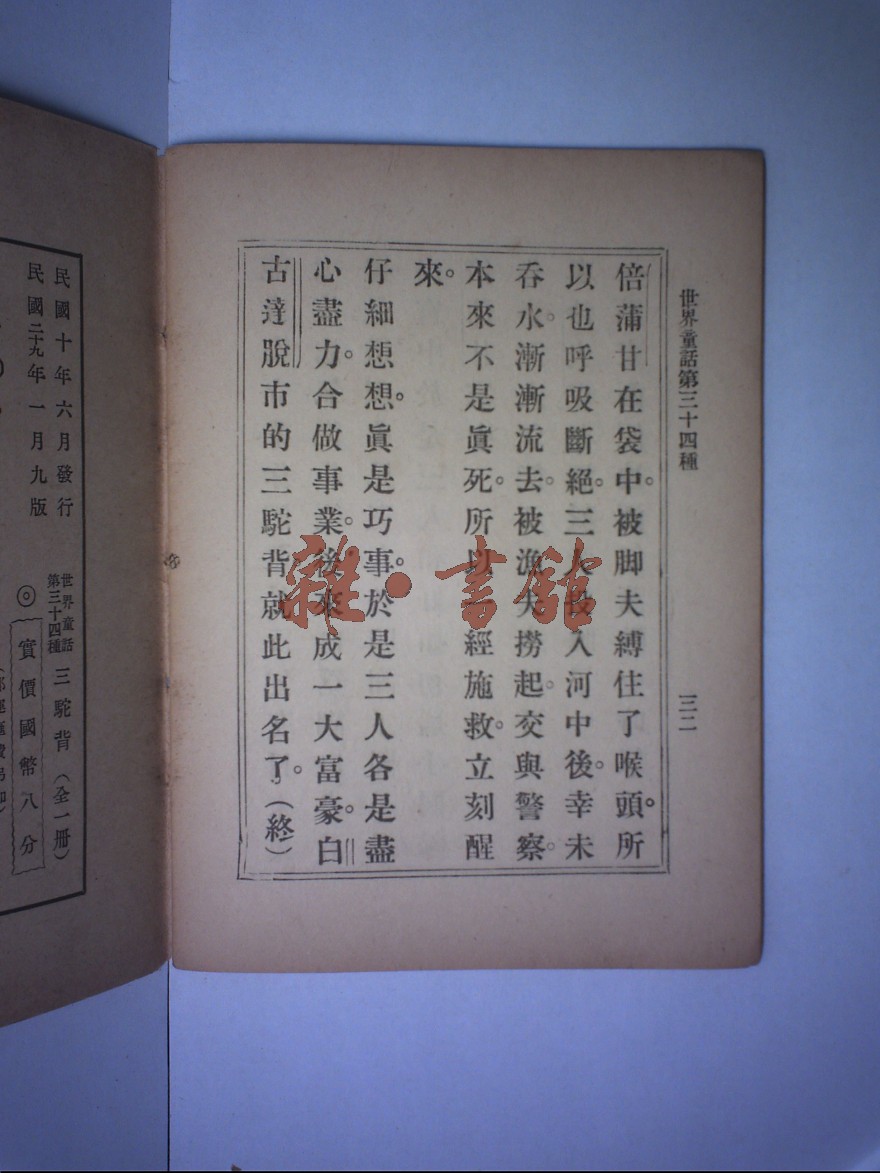 世界童話第三十四種
三二
倍蒲甘在袋中。被脚夫縛住了喉頭。所
以也呼吸斷絕。三人投入河中後。幸未
吞水。漸漸流去。被漁夫撈起。交與警察。
本來不是眞死。所以一經施救。立刻醒
來。
仔細想想。眞是巧事。於是三人各是盡
心盡力。合做事業。後來成一大富豪。白
古達脫市的三駝背。就此出名了。(終)
雜·書館
民國十年六月發行
民國二十九年一月九版
世界童話
第三十四種
三駝背(全一册)
◎實價國幣八分